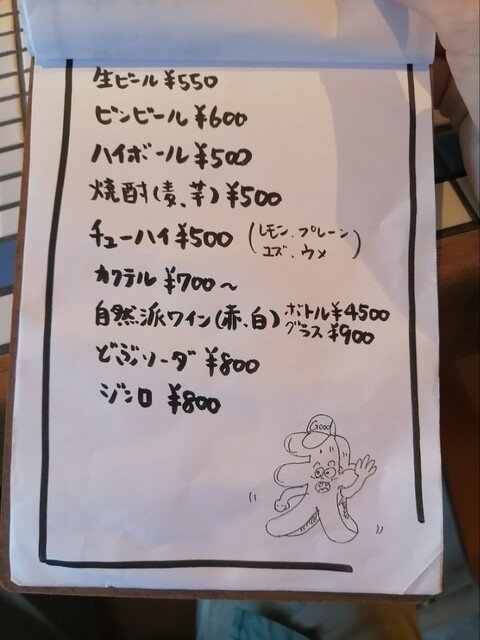 生ビール ¥550
ビンビール ¥600
ハイボール ¥500
焼酎(麦、芋) ¥500
チューハイ ¥500 (レモン、プレーン
ユズ、ウメ)
カクテル ¥700〜
自然派ワイン(赤、白) ボトル ¥4500
グラス ¥900
どぶソーダ ¥800
ジンロ ¥800
Good